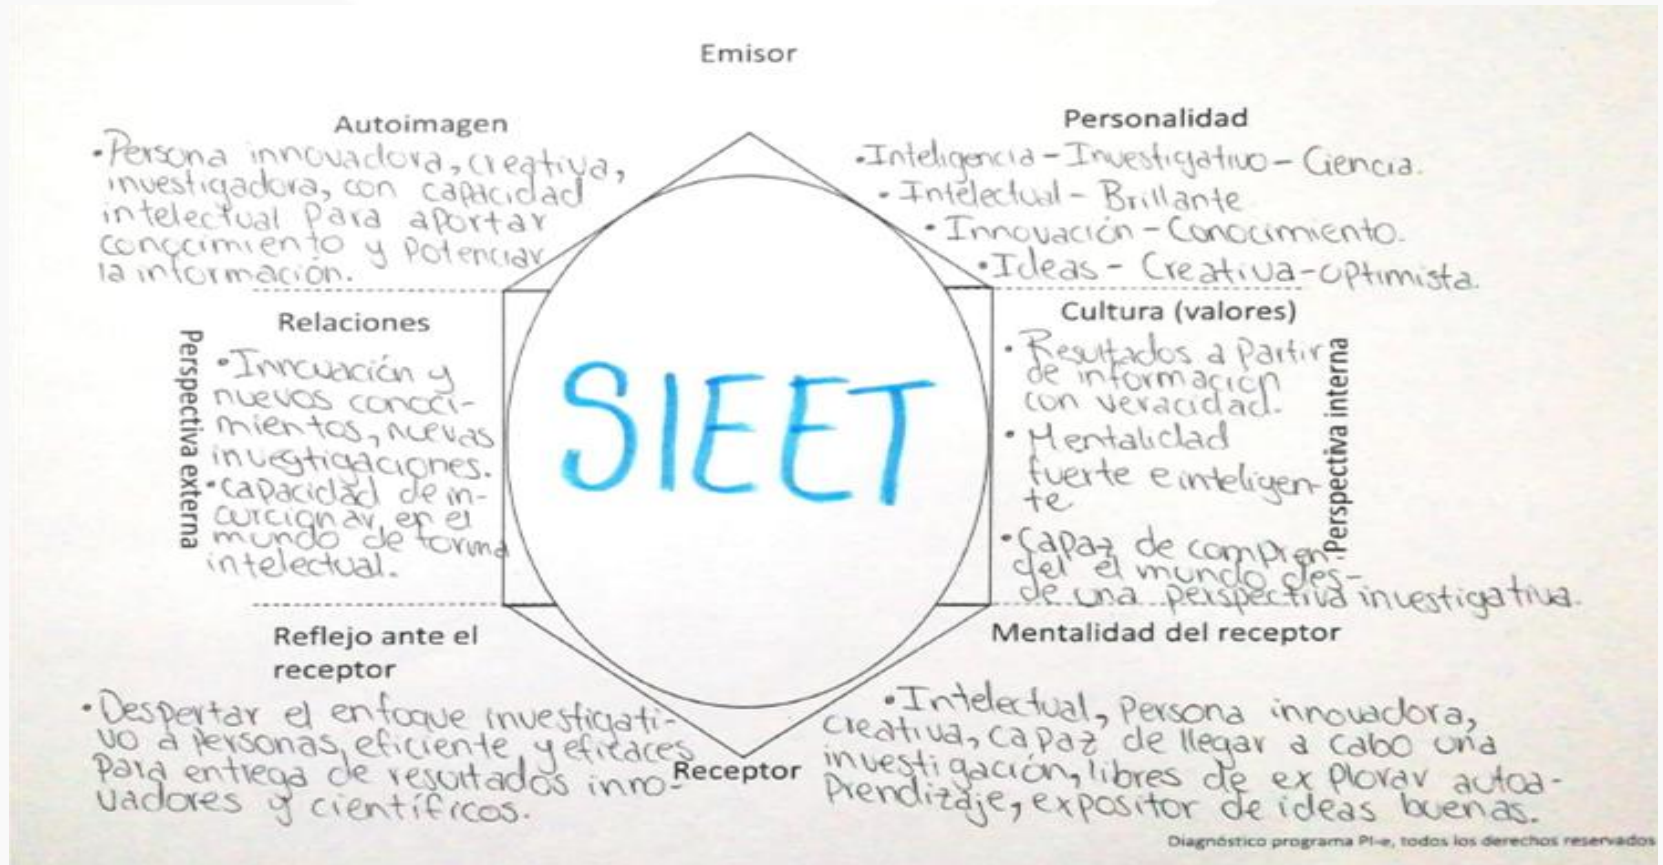 Emisor
Autoimagen
•Persona innovadora, creativa,
investigadora, con capacidad
intelectual para aportar
conocimiento y potenciar
la información.
Personalidad
•Inteligencia-Investigativo-Ciencia.
•Intelectual-Brillante
•Innovación-Conocimiento.
•Ideas-Creativa-optimista.
Relaciones
•Innovación y
nuevos conoci-
mientos, nuevas
investigaciones.
•capacidad de in-
curcignar, en el
mundo de forma
intelectual.
Perspectiva externa
SIEET
Cultura (valores)
•Resultados a partir
de información
con veracidad.
•Mentalidad
fuerte e inteligen-
te.
•Capaz de compren-
der el mundo des-
de una perspectiva investigativa.
Perspectiva interna
Reflejo ante el
receptor
•Despertar el enfoque investigati-
vo a personas, eficiente y eficaces
para entrega de resultados inno-
vadores y científicos.
Receptor
Mentalidad del receptor
•Intelectual, persona innovadora,
creativa, capaz de llegar a cabo una
investigación, libres de explorar autoa-
prendizaje, expositor de ideas buenas.
Diagnóstico programa PI-e, todos los derechos reservados